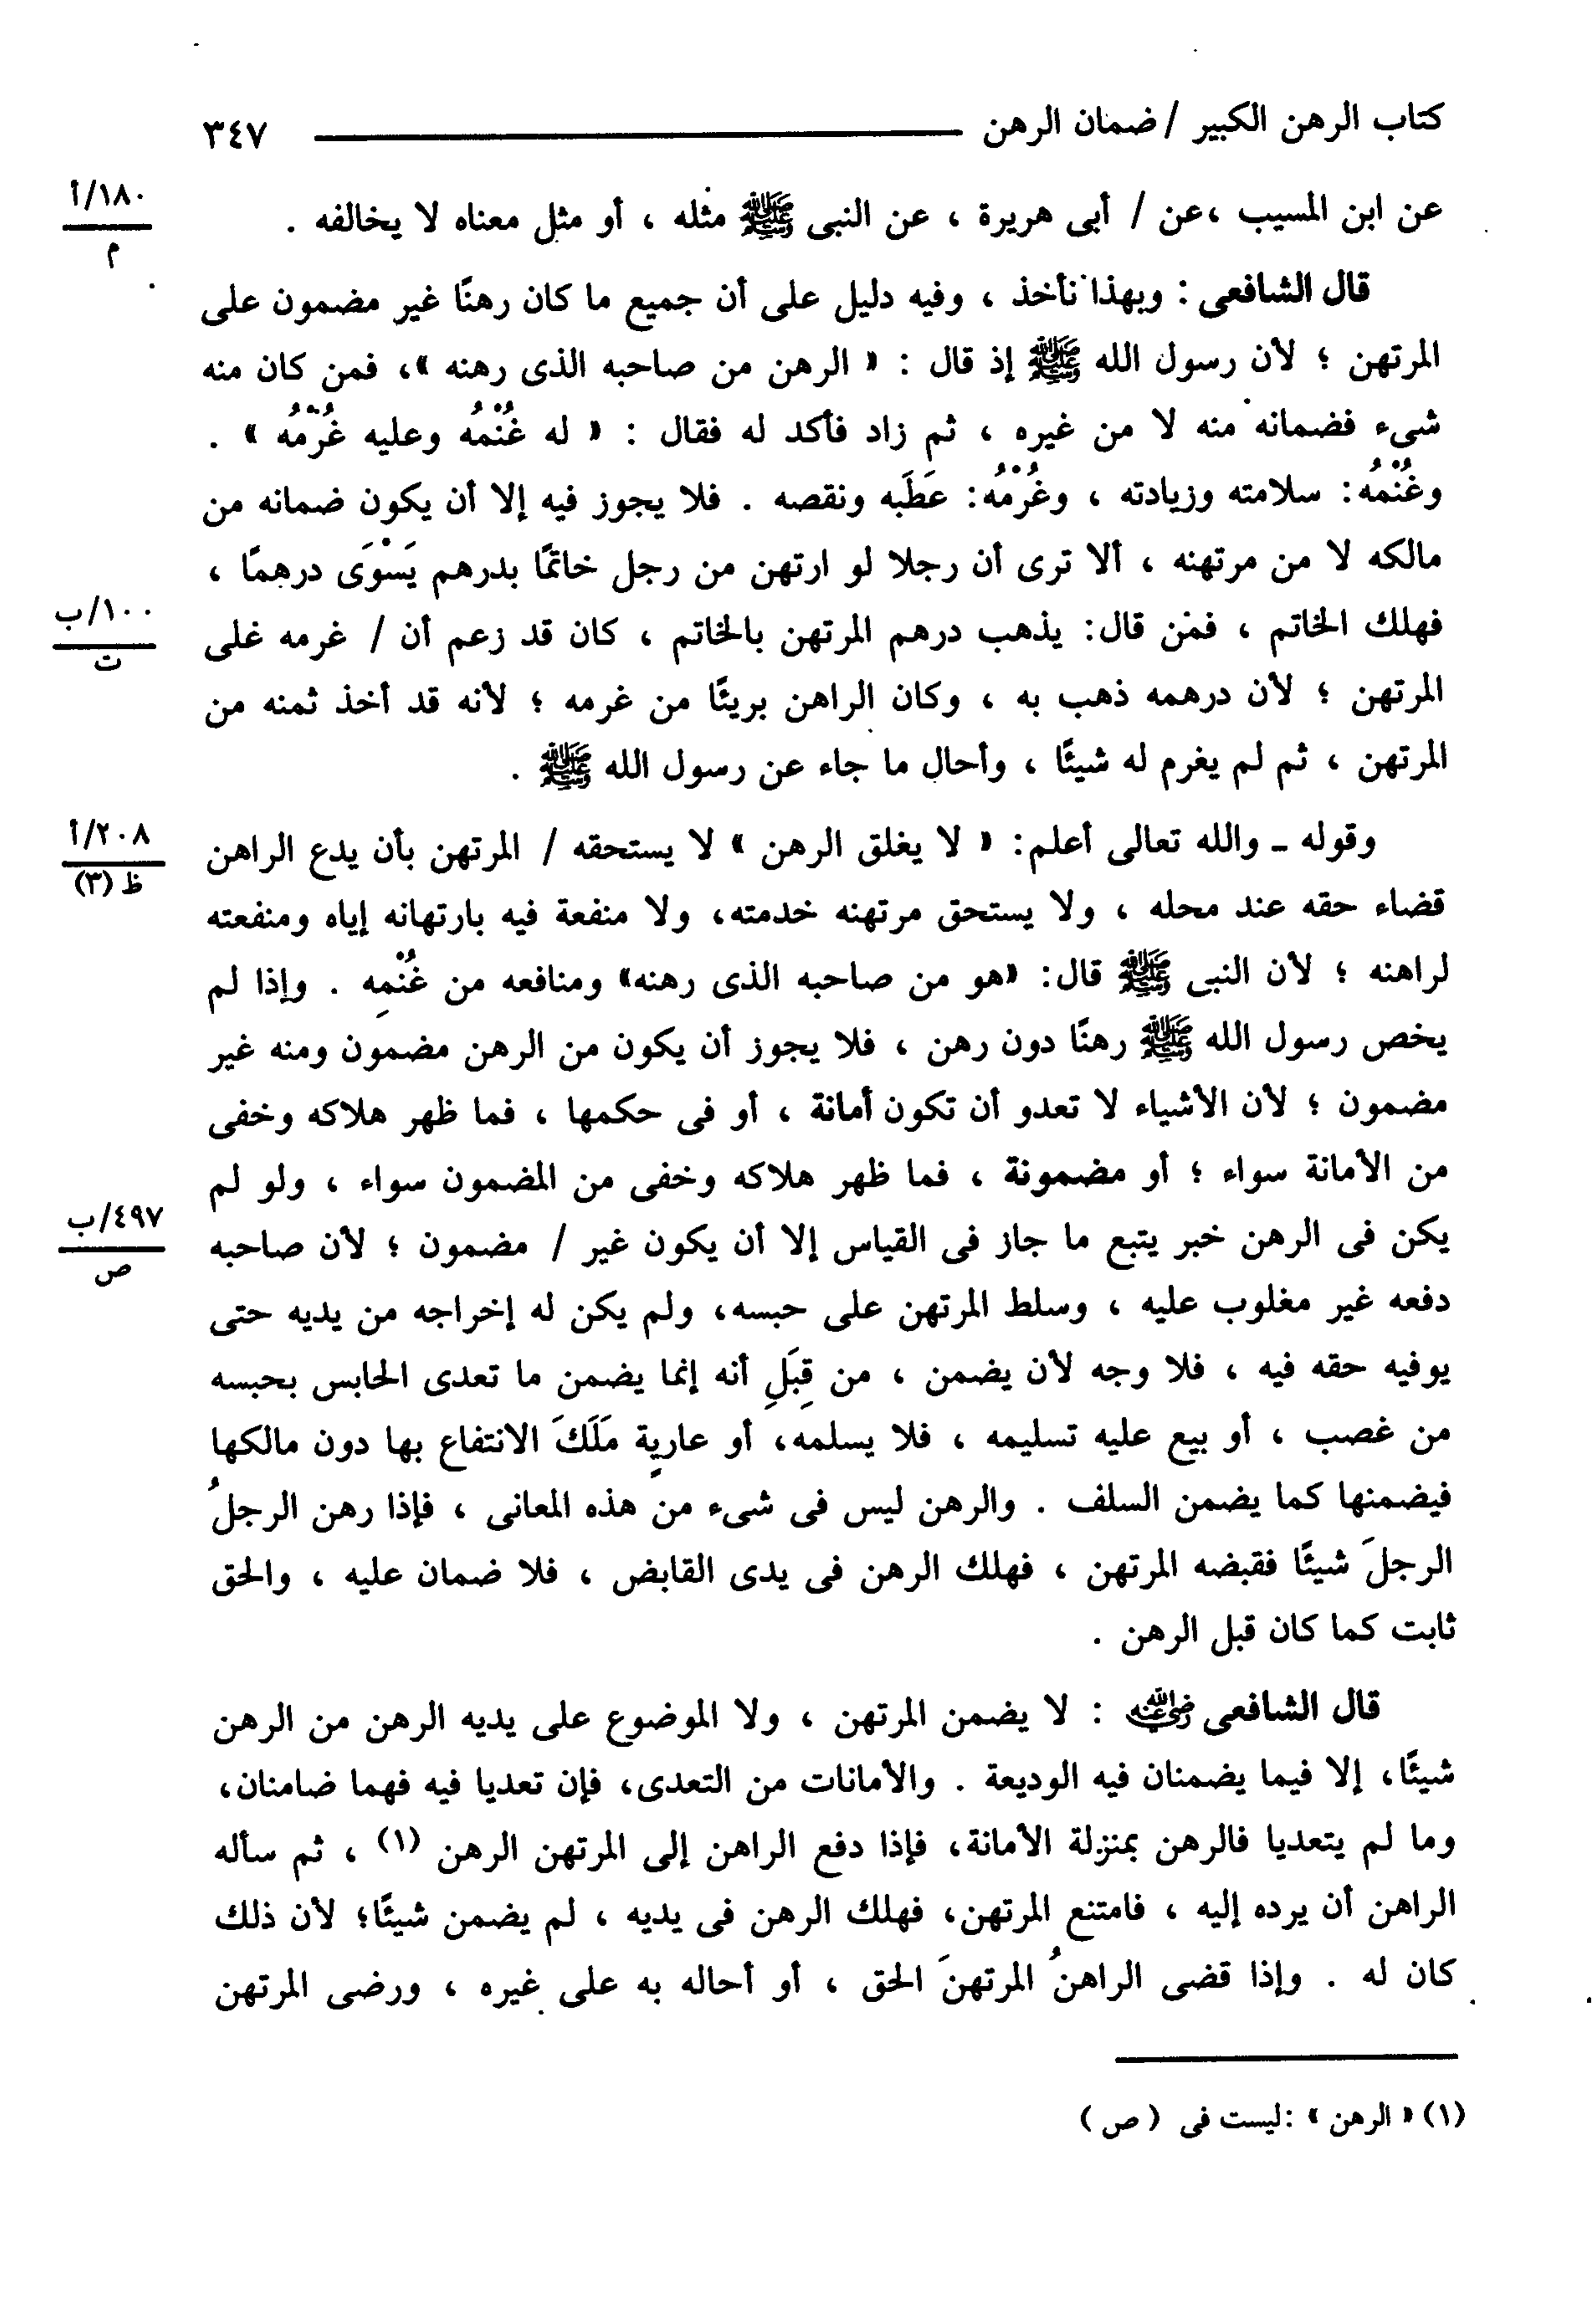 كتاب الرهن الكبير / ضمان الرهن ٣٤٧
عن ابن المسيب ،عن / أبى هريرة ، عن النبى ﷺ مثله ، أو مثل معناه لا يخالفه .
١٨٠/أ
م
قال الشافعى : وبهذا نأخذ ، وفيه دليل على أن جميع ما كان رهنًا غير مضمون على
المرتهن ؛ لأن رسول الله ﷺ إذ قال : « الرهن من صاحبه الذى رهنه »، فمن كان منه
شىء فضمانه منه لا من غيره ، ثم زاد فأكد له فقال : « له غُنْمُه وعليه غُرْمُه » .
وغُنْمُه: سلامته وزيادته ، وغُرْمُه: عَطَبه ونقصه . فلا يجوز فيه إلا أن يكون ضمانه من
مالكه لا من مرتهنه ، ألا ترى أن رجلا لو ارتهن من رجل خاتمًا بدرهم يَسْوَى درهمًا ،
فهلك الخاتم ، فمن قال: يذهب درهم المرتهن بالخاتم ، كان قد زعم أن / غرمه على
١٠٠/ب
ت
المرتهن ؛ لأن درهمه ذهب به ، وكان الراهن بريئًا من غرمه ؛ لأنه قد أخذ ثمنه من
المرتهن ، ثم لم يغرم له شيئًا ، وأحال ما جاء عن رسول الله ﷺ .
وقوله ـ والله تعالى أعلم: « لا يغلق الرهن » لا يستحقه / المرتهن بأن يدع الراهن
٢٠٨/أ
ظ (٣)
قضاء حقه عند محله ، ولا يستحق مرتهنه خدمته، ولا منفعة فيه بارتهانه إياه ومنفعته
لراهنه ؛ لأن النبى ﷺ قال: «هو من صاحبه الذى رهنه» ومنافعه من غُنْمِه . وإذا لم
يخص رسول الله ﷺ رهنًا دون رهن ، فلا يجوز أن يكون من الرهن مضمون ومنه غير
مضمون ؛ لأن الأشياء لا تعدو أن تكون أمانة ، أو فى حكمها ، فما ظهر هلاكه وخفى
من الأمانة سواء ؛ أو مضمونة ، فما ظهر هلاكه وخفى من المضمون سواء ، ولو لم
يكن فى الرهن خبر يتبع ما جاز فى القياس إلا أن يكون غير / مضمون ؛ لأن صاحبه
٤٩٧/ب
ص
دفعه غير مغلوب عليه ، وسلط المرتهن على حبسه، ولم يكن له إخراجه من يديه حتى
يوفيه حقه فيه ، فلا وجه لأن يضمن ، من قِبَلِ أنه إنما يضمن ما تعدى الحابس بحبسه
من غصب ، أو بيع عليه تسليمه ، فلا يسلمه، أو عاريةٍ مَلَكَ الانتفاع بها دون مالكها
فيضمنها كما يضمن السلف . والرهن ليس فى شىء من هذه المعانى ، فإذا رهن الرجلُ
الرجلَ شيئًا فقبضه المرتهن ، فهلك الرهن فى يدى القابض ، فلا ضمان عليه ، والحق
ثابت كما كان قبل الرهن .
قال الشافعى رضي الله عنه : لا يضمن المرتهن ، ولا الموضوع على يديه الرهن من الرهن
شيئًا، إلا فيما يضمنان فيه الوديعة . والأمانات من التعدى، فإن تعديا فيه فهما ضامنان،
وما لم يتعديا فالرهن بمنزلة الأمانة، فإذا دفع الراهن إلى المرتهن الرهن (١) ، ثم سأله
الراهن أن يرده إليه ، فامتنع المرتهن، فهلك الرهن فى يديه ، لم يضمن شيئًا؛ لأن ذلك
كان له . وإذا قضى الراهنُ المرتهنَ الحق ، أو أحاله به على غيره ، ورضى المرتهن
(١) « الرهن » :ليست فى ( ص )